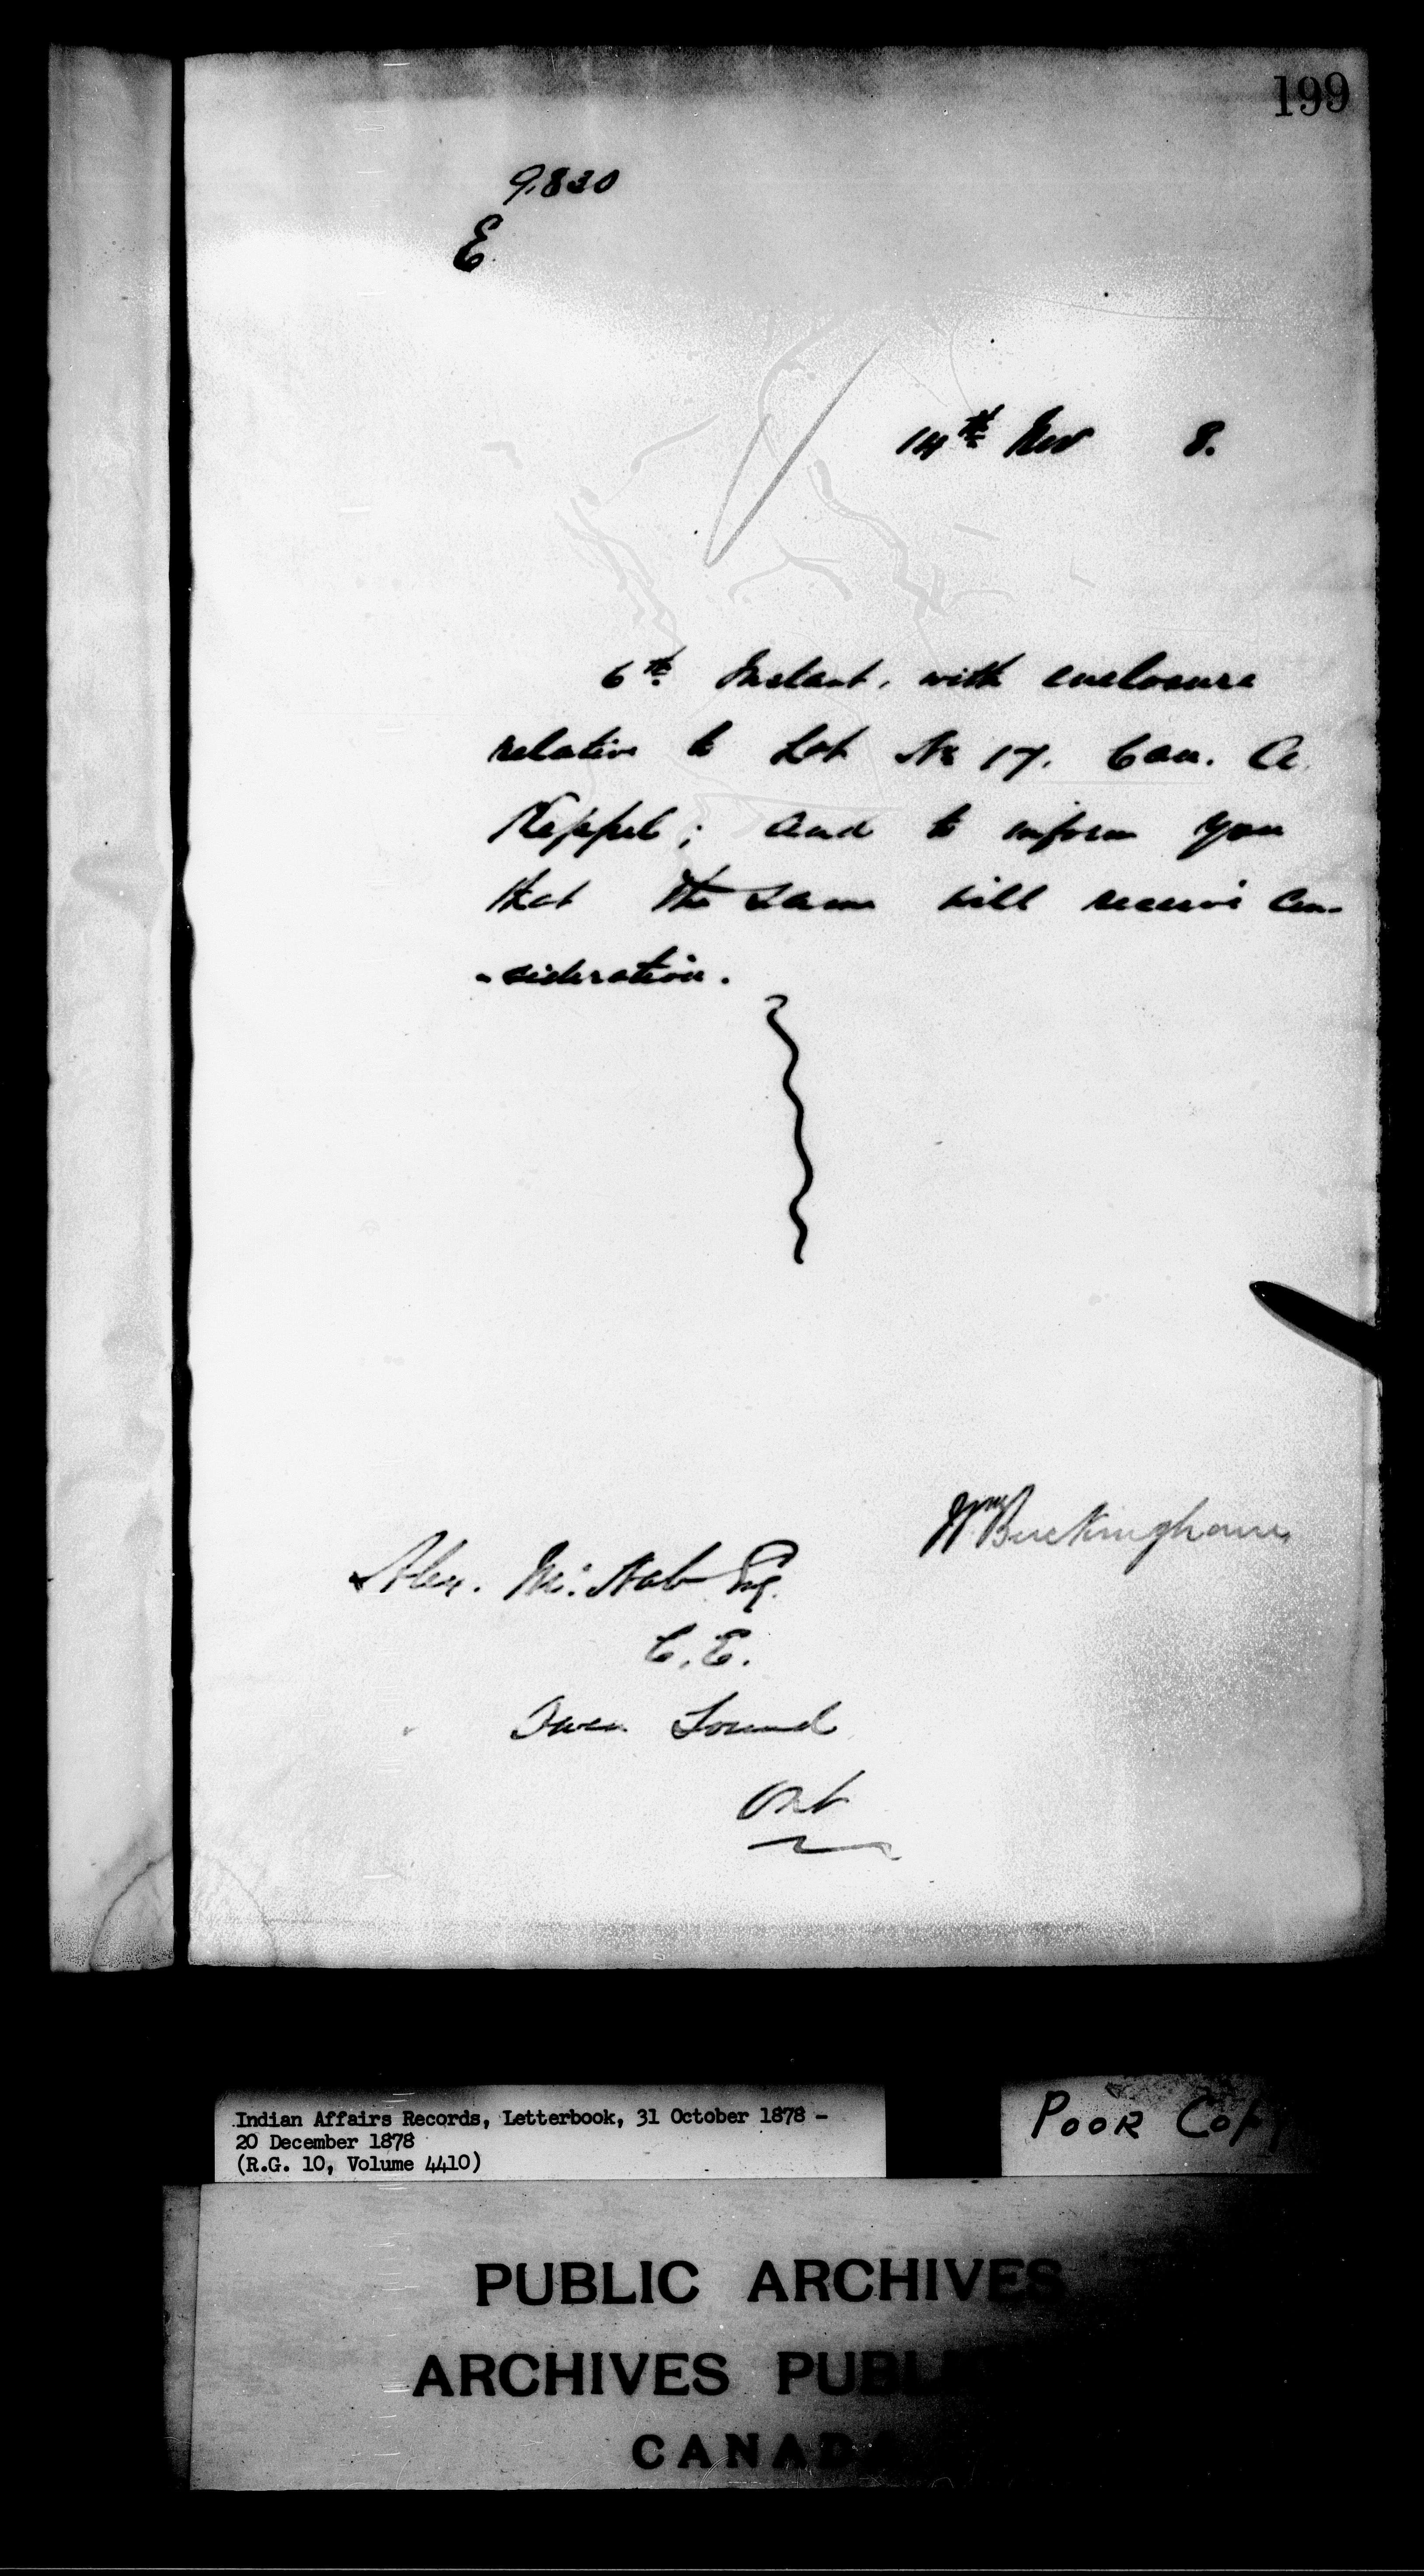 199
9,830
E.
14th Nov 8.
6th Instant, with enclosure
relative to Lot No 17. Con. A.
Keppel; and to inform you
that the same will receive Con-
-sideration.
Wm Buckingham
Alex. McNab Esq.
C.E.
Owen Sound
Ont
Indian Affairs Records, Letterbook, 31 October 1878 -
20 December 1878
(R.G. 10, Volume 4410)
POOR COPY
PUBLIC ARCHIVES
ARCHIVES PUBLI
CANADA